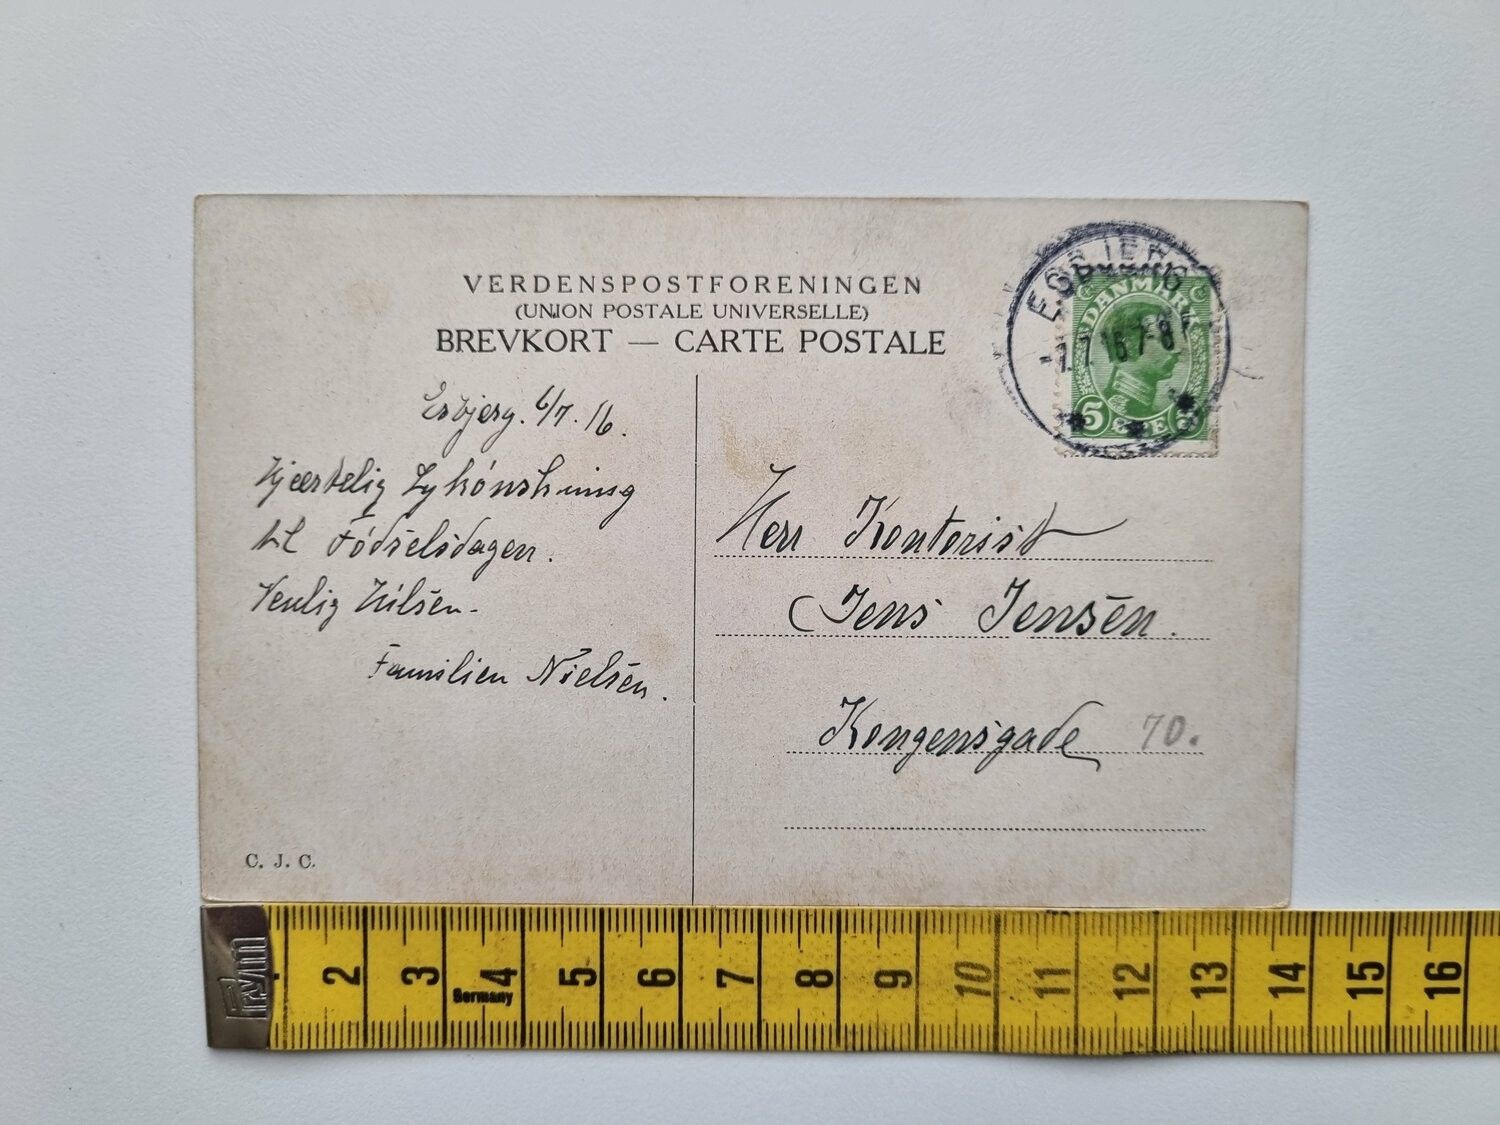 VERDENSPOSTFORENINGEN
(UNION POSTALE UNIVERSELLE)
BREVKORT — CARTE POSTALE
ESBJERG
7.7.16 7-8
DANMARK
5 ØRE 5
Esbjerg. 6/7. 16.
Hjærtelig Lykónskning
til Fódselsdagen.
Venlig Hilsen.
Familien Nielsen.
Herr Kontorist
Jens Jensen.
Kongensgade 70.
C. J. C.
Prym
1 2 3 4 5 6 7 8 9 10 11 12 13 14 15 16
Germany